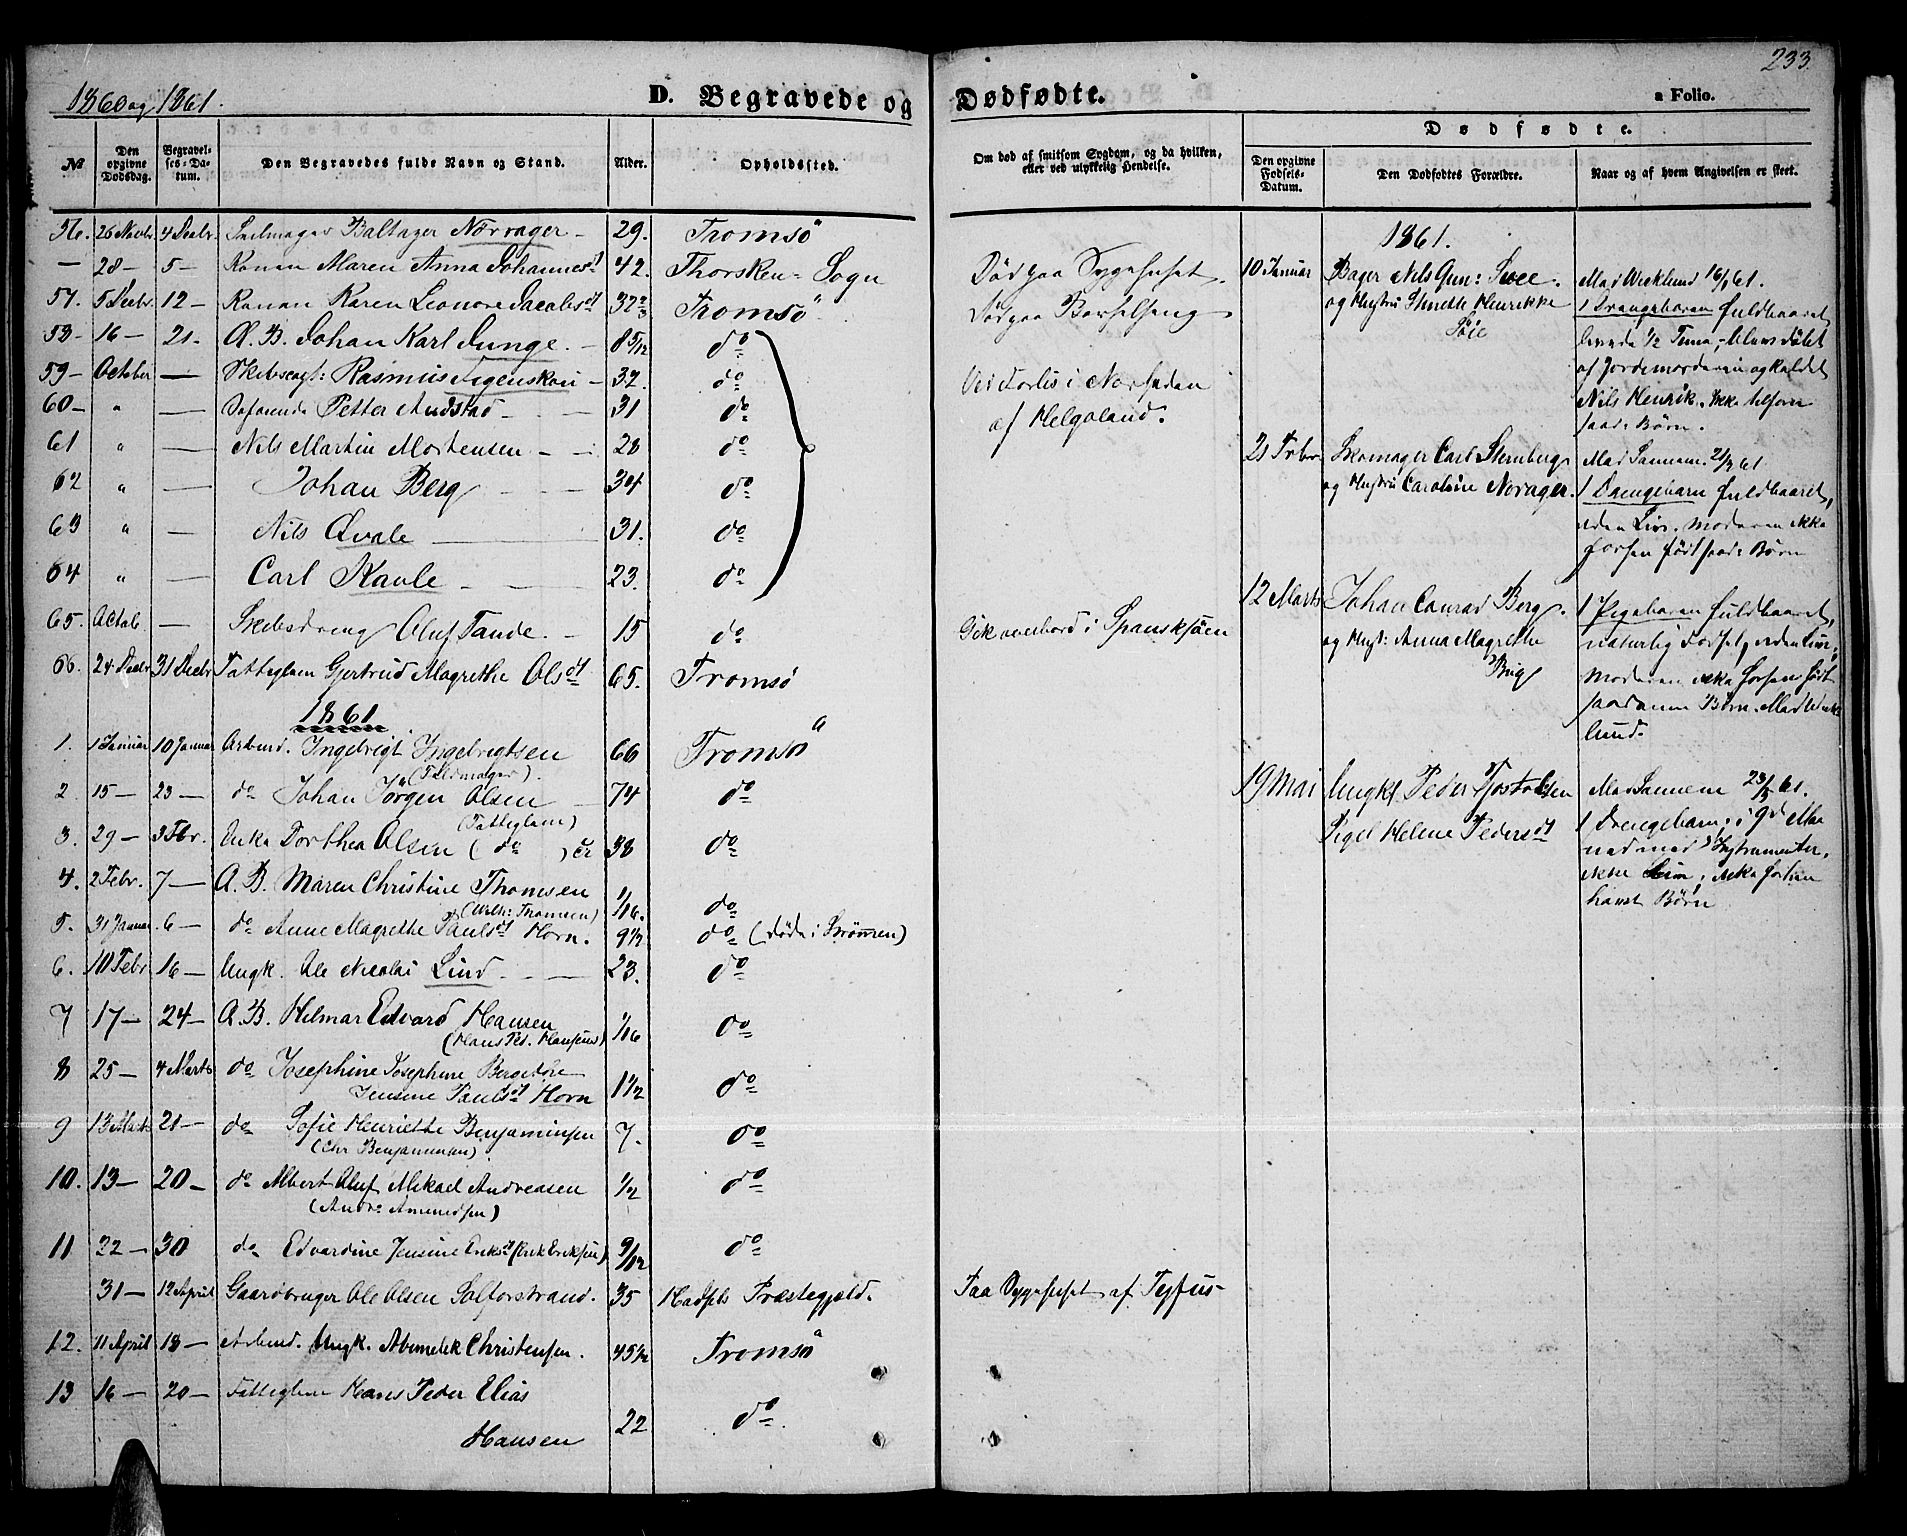 1860 og 1861.
D. Begravede og Dødfødte.
233.
a Folio.
№
Den opgivne Dødsdag.
Begravelses-Datum.
Den Begravedes fulde Navn og Stand.
Alder.
Opholdssted.
Om død af smitsom Sygdom, og da hvilken, eller ved ulykkelig Hendelse.
Dødfødte.
Den opgivne Fødsels-Datum.
Den Dødfødtes Forældre.
Naar og af hvem Angivelsen er skeet.
56. 26 Novbr. 4 Decbr. Baltazer Nørvager - 29. Tromsø
— 28 - 5 - Konen Maren Anna Johannesdt 42. Thorsken Sogn Død paa Sygehuset.
57. 5 Decbr. 12 - Konen Karen Leonore Jacobsdt Tromsø Død paa Barselseng
58 - 16 - 21. A. B. Johan Karl Junge. - 8 5/12 do
59 - October — Skibscapt: Rasmus Figenskou - 37. do Ved Forlis i Nordsøen
60 - " — Søfarende Petter Andstad - 31 do af Helgoland.
61 " — Nils Martin Mortensen - 28 do
62 " — Johan Berg - 34 do
63 " — Nils Qvale 31. do
64 " — Carl Kaule - 23. do
65. Octob — Skibsdreng Oluf Tande. - 15 do Gik overbord i Spansksøen
66. 24 Decbr 31 Decbr Fattiglem Gjertrud Magrethe Olsdt 65. Tromsø
1861
1. 1 Januar 10 Januar Arbmd. Ingebrigt Ingebrigtsen 66 Tromsø
2. 15 - 23 - do Johan Jørgen Olsen - 74 do
3. 29 - 3 Fbr. Enke Dorthea Olsen (do) 38 do
(Fattiglem)
4. 2 Febr. 7 - A. B. Maren Christine Thomsen 1/16. do
(Wilh: Thomsen)
5. 31 Januar. 6 - do Anne Magrethe Paulsdt Horn. 9 1/2 do (døde i Strømmen)
6. 10 Febr 16 - Ungk. Ole Nicolai Lind - 23. do
7 17 - 24 - A. B. Hilmar Edvard Hansen 1/16 do
(Hans Pet. Hansens)
8 25 - 4 Marts do Josephine Josephine Bergithe
Jensine Paulsdt Horn 1 1/2 do
9 13 Marts 21 - do Sofie Henriette Benjaminsen 7. do
(Chr Benjaminsen)
10. 13 - 20 - do Albert Oluf Mikael Andreasen 1/2 do
(Andr. Amundsen)
11 22 - 30 do Edvardine Jensine Eriksdt (Erik Eriksen) 9/12 do
31 - 12 April Gaardbruger Ole Olsen Saltorstrand. 35 Hadsels Præstegjeld. Paa Sygehuset af Tyfus -
12. 11 April 18 - Arbmd. Ungk. Abimelek Christensen. 45 1/2 Tromsø
13 16 - 20 - Fattiglem Hans Peder Elias
Hansen 22 do
1861.
10 Januar Bager Nils Gun:
og Hustru Henrikke
Mad Wicklund 16/1 61.
1 Drengebarn fuldbaaret
levende 1/2 Time,
af Jordemoderen og kaldet
Nils Henrik. Ikke tilforn
saad: Børn.
21 Febr. Skomager Carl Sternberg
og Hustru Caroline Norager.
Mad Sannem. 61
1 Drengebarn fuldbaaret,
uden Liv. Moderen ikke
forhen født saad: Børn
12 Marts Johan Conrad Berg.
og Hust: Anna Magrethe
1 Pigebarn fuldbaaret,
naturlig Fødsel, uden Liv.
Moderen ikke forhen født
saadanne Børn. Mad Wick
lund.
19 Mai Ungkl Peder Tostelsen
Pigel Helene Pedersdt
Mad Sannem 23/5 61.
1 Drengebarn, i 9d Maa
ned med Instrumenter,
ikke Liv, ikke forhen
havt Børn